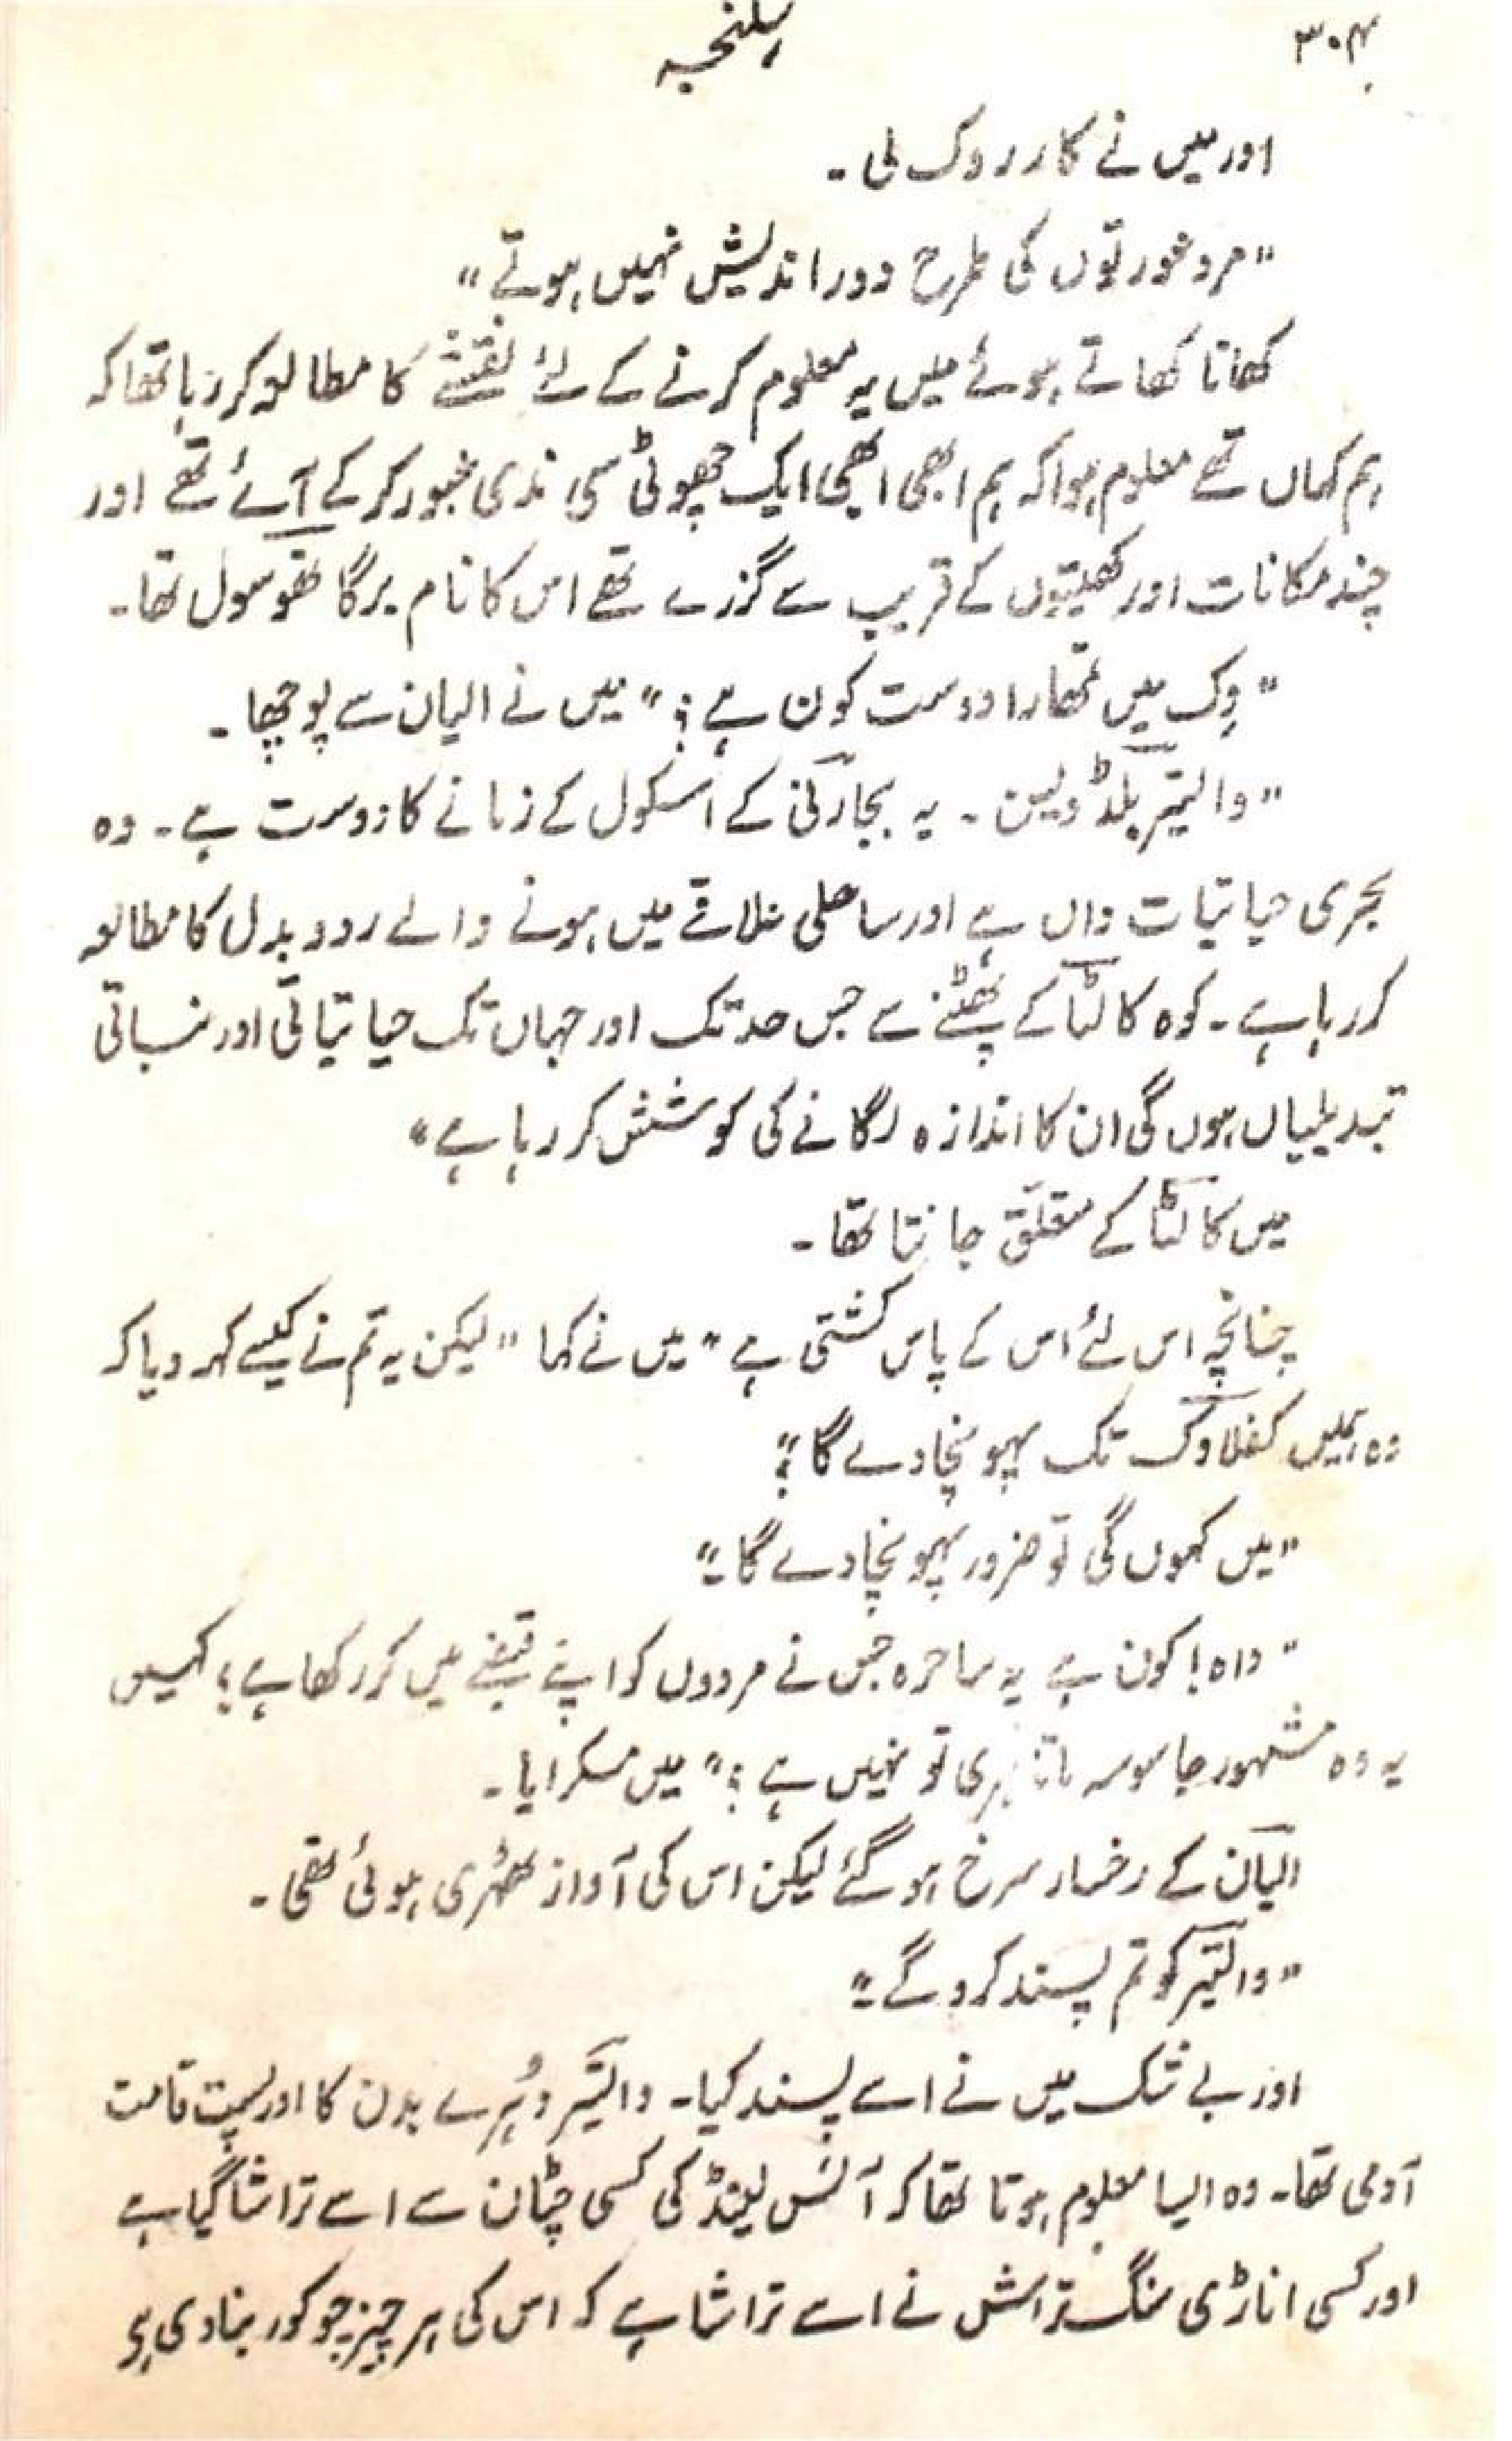 ۳۰۴
اور میں نے کار روک لی۔
"مرد عورتوں کی طرح دور اندیش نہیں ہوتے"
کھانا کھاتے ہوئے میں یہ معلوم کرنے کے لئے نقشے کا مطالعہ کر رہا تھا کہ
ہم کہاں تھے معلوم ہوا کہ ہم ابھی ابھی ایک چھوٹی سی ندی عبور کر کے آئے تھے اور
چند مکانات اور کھیتوں کے قریب سے گزرے تھے اس کا نام برگا تھوسول تھا۔
"وِک میں تمھارا دوست کون ہے؟" میں نے الیان سے پوچھا۔
"والتیر بلڈ ولین۔ یہ بجارنی کے اسکول کے زمانے کا دوست ہے۔ وہ
بحری حیاتیات داں ہے اور ساحلی علاقے میں ہونے والے ردو بدل کا مطالعہ
کر رہا ہے۔ کوہ کالٹا کے پھٹنے سے جس حد تک اور جہاں تک حیاتیاتی اور نسباتی
تبدیلیاں ہوں گی ان کا اندازہ لگانے کی کوشش کر رہا ہے"
میں کالٹا کے متعلق جانتا تھا۔
چنانچہ اس لئے اس کے پاس کشتی ہے" میں نے کہا "لیکن یہ تم نے کیسے کہہ دیا کہ
وہ ہمیں کفلاوک تک پہونچا دے گا؟"
"میں کہوں گی تو ضرور پہونچا دے گا۔"
"واہ! کون ہے یہ ساحرہ جس نے مردوں کو اپنے قبضے میں کر رکھا ہے؟ کہیں
یہ وہ مشہور جاسوسہ ماتا ہری تو نہیں ہے؟" میں مسکرایا۔
الیان کے رخسار سرخ ہو گئے لیکن اس کی آواز ٹھہری ہوئی تھی۔
"والتیر کو تم پسند کرو گے۔"
اور بے شک میں نے اسے پسند کیا۔ والتیر دُہرے بدن کا اور پست قامت
آدمی تھا۔ وہ ایسا معلوم ہوتا تھا کہ آئس لینڈ کی کسی چٹان سے اسے تراشا گیا ہے
اور کسی اناڑی سنگ تراش نے اسے تراشا ہے کہ اس کی ہر چیز چوکور بنا دی ہو